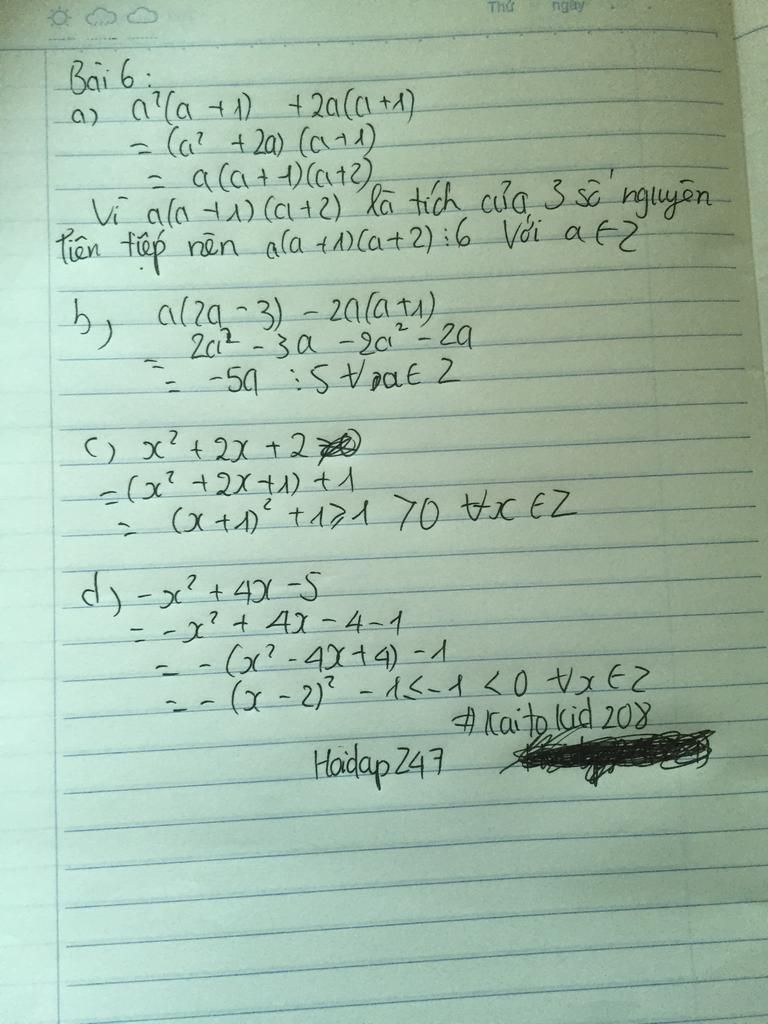 Thứ ngày
Bài 6:
a) a²(a+1) +2a(a+1)
= (a² +2a) (a+1)
= a(a+1)(a+2)
Vì a(a+1)(a+2) là tích của 3 số nguyên
liên tiếp nên a(a+1)(a+2)⋮6 Với a∈Z
b) a(2a-3) - 2a(a+1)
= 2a² - 3a - 2a² - 2a
= -5a ⋮5 ∀a∈Z
c) x² + 2x + 2
=(x² + 2x+1) + 1
= (x+1)² +1⩾1 >0 ∀x∈Z
d) -x² + 4x -5
= -x² + 4x - 4 -1
= - (x² - 4x+4) -1
= - (x - 2)² - 1≤-1 <0 ∀x∈Z
#KaitoKid208
Hoidap247